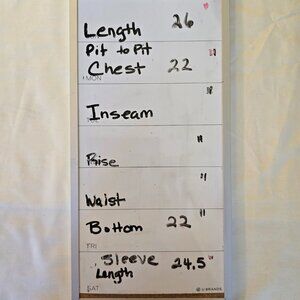 Length 26 "
Pit to Pit
Chest 22 "
MON
Inseam "
Rise "
Waist "
Bottom 22 "
FRI
Sleeve 24.5 "
Length
SAT U BRANDS